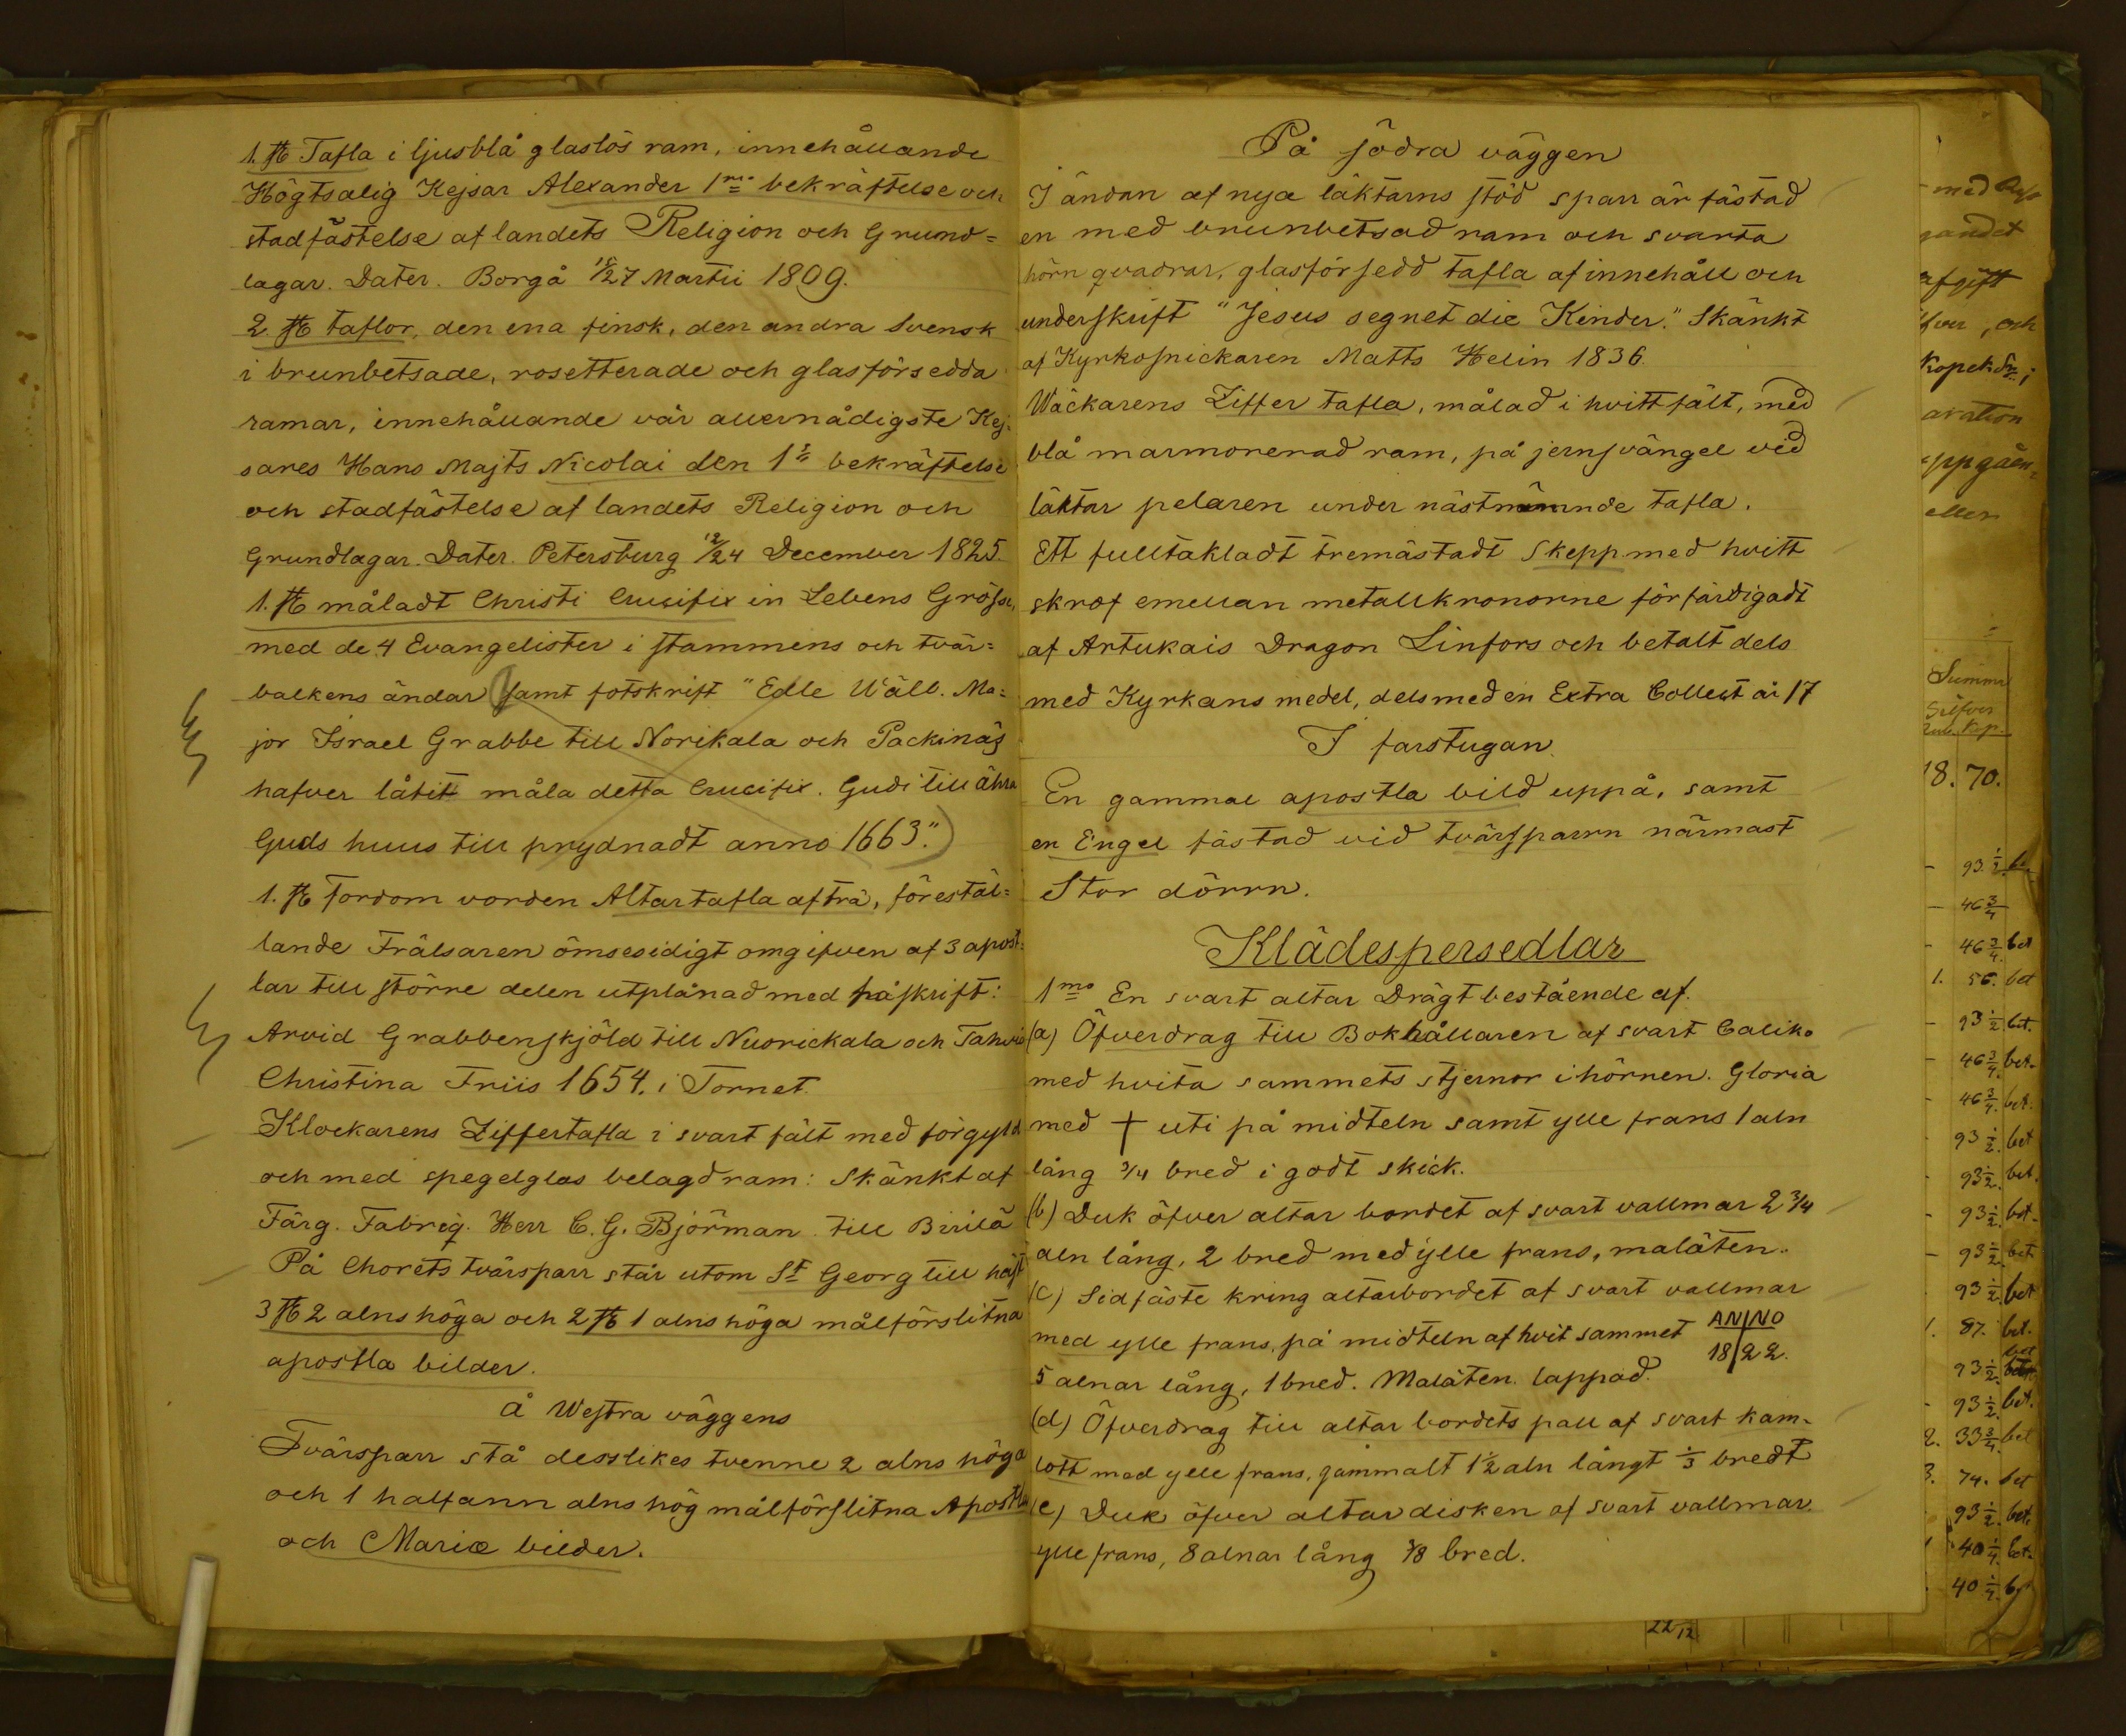 1. st Tafla i ljusblå glaslös ram, innehållande
Högtsalig Kejsar Alexander 1mo bekräftelse och
stadfästelse af landets Religion och Grund=
lagar. Dater. Borgå 15/27 Martii 1809.
2. st taflor, den ena finsk, den andra Svensk
i brunbetsade, rosetterade och glasförsedda
ramar, innehållande vår allernådigste Kej-
sares Hans Majts Nicolai den 1s bekräftelse
och stadfästelse af landets Religion och
Grundlagar. Dater. Petersburg 12/24 December 1825.
1. st måladt Christi Crucifix in Lebens Grösse,
med de 4 Evangelister i stammens och tvär=
balkens ändar (samt fotskrift "Edle Wälb. Ma=
jor Israel Grabbe till Norikala och Packinäs
hafver låtit måla detta Crucifix. Gudi till ähra
Guds huus till prydnadt anno 1663.")
1. st fordom vorden Altartafla af trä, förestäl=
lande Frälsaren ömsesidigt omgifven af 3 apost=
lar till större delen utplånad med påskrift:
Arvid Grabbenskjöld till Nuorickala och Tahvio
Christina Friis 1654. i Tornet.
Klockarens Ziffertafla i svart fält med förgyld
och med spegelglas belagd ram: Skänkt af
Färg. Fabriq. Herr C. G. Björman till Birilä
På Chorets tvärsparr står utom St Georg till häst
3 st 2 alns höga och 2 st 1 alns höga målförslitna
apostla bilder.
å Westra väggens
Tvärsparr stå desslikes tvenne 2 alns höga
och 1 halfann alns hög målförslitna Apostla
och Mariæ bilder.
På södra väggen
I ändan af nya läktarns stöd sparr är fästad
en med brunbetsad ram och svarta
hörn qvadrar, glasförsedd tafla af innehåll och
underskrift "Jesus segnet die Kinder." Skänkt
af Kyrkosnickaren Matts Helin 1836.
Wäckarens Ziffer tafla, målad i hvitt fält, med
blå marmorerad ram, på jernsvängel vid
läktar pelaren under nästnämnde tafla.
Ett fulltakladt tremästadt Skepp med hvitt
skrof emellan metallkronorne förfärdigadt
af Artukais Dragon Linfors och betalt dels
med Kyrkans medel, dels med en Extra Collect år 17
I farstugan.
En gammal apostla bild uppå, samt
en Engel fästad vid tvärsparrn närmast
Stor dörrn.
Klädespersedlar
1mo En svart altar Drägt bestående af.
(a) Öfverdrag till Bokhållaren af svart Caliko
med hvita sammets stjernor i hörnen. Gloria
med † uti på midteln samt ylle frans 1 aln
lång 3/4 bred i godt skick.
(b) Duk öfver altar bordet af svart vallmar 2 3/4
aln lång, 2 bred med ylle frans, maläten.
(c) Sidfäste kring altarbordet af svart vallmar
med ylle frans, på midteln af hvit sammet ANNO 1822.
5 alnar lång, 1 bred. Maläten. lappad.
(d) Öfverdrag till altar bordets pall af svart kam-
lott med ylle frans, gammalt 1 1/2 aln långt 1/3 bredt
(e) Duk öfver altardisken af svart vallmar
ylle frans, 8 alnar lång 7/8 bred.
med
gandet
afgift
fver, och
Kopek Sr;
aration
ppgåen=
eller
Summa
Silfver
Rub. Kop.
18. 70.
93 1/2
46 3/4
46 3/4 bet
1. 56. bet
93 1/2 bet.
46 3/4 bet.
46 3/4 bet.
93 1/2 bet
93 1/2 bet.
93 1/2 bet.
93 1/2 bet
93 1/2 bet
1. 87. bet.
93 1/2 bet
93 1/2 bet.
2. 33 3/4 bet
3. 74. bet
93 1/2 bet.
40 1/4 bet.
40 1/4
22/12